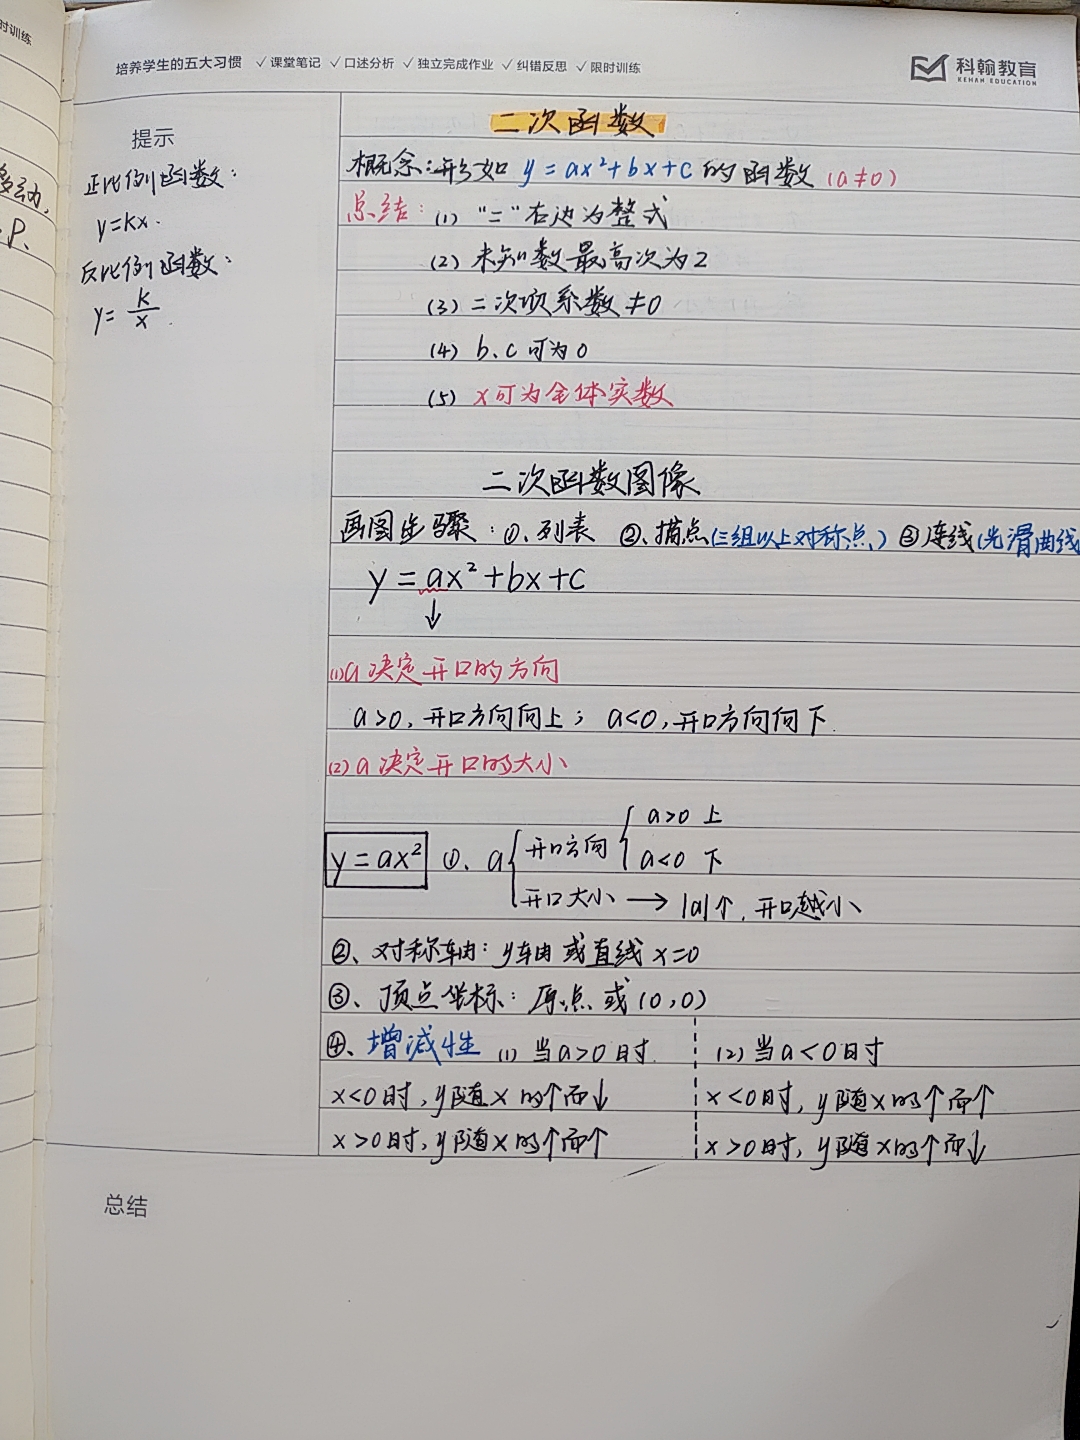 时训练
培养学生的五大习惯 ✓课堂笔记 ✓口述分析 ✓独立完成作业 ✓纠错反思 ✓限时训练
科翰教育
KEHAN EDUCATION
提示
正比例函数：
y=kx.
反比例函数：
y= k/x.
动,
P.
二次函数
概念：形如 y=ax²+bx+c 的函数 (a≠0)
总结：(1) "="右边为整式
(2) 未知数最高次为2
(3) 二次项系数≠0
(4) b、c可为0
(5) x可为全体实数
二次函数图像
画图步骤：①、列表 ②、描点(三组以上对称点) ③连线(光滑曲线
y=ax²+bx+c
↓
(1)a决定开口的方向
a>0,开口方向向上；a<0,开口方向向下.
(2)a决定开口的大小
y=ax² ①、a { 开口方向 { a>0 上
a<0 下
开口大小 → |a|↑,开口越小
②、对称轴：y轴或直线x=0
③、顶点坐标：原点或(0,0)
④、增减性 (1) 当a>0时. (2) 当a<0时
x<0时,y随x的↑而↓ x<0时,y随x的↑而↑
x>0时,y随x的↑而↑ x>0时,y随x的↑而↓
总结